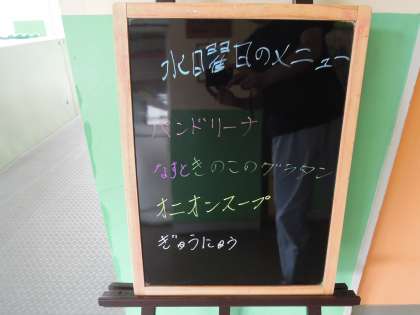 水曜日のメニュー
パンドリーナ
なすときのこのグラタン
オニオンスープ
ぎゅうにゅう